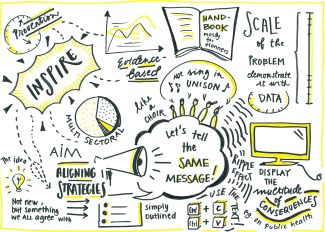 Prevention
INSPIRE
Evidence-
Based
HAND-
BOOK
mostly
for
planners
SCALE
of the
PROBLEM
demonstrate
it with
DATA
not sing in
UNISON
like
a
CHOIR
MULTI SECTORAL
Let's tell
the
SAME
MESSAGE!
AIM
ALIGNING
STRATEGIES
The idea
Not new,
but something
we all agree with
simply
outlined
RIPPLE
EFFECT
USE THE
TEXT!
+ C
+ V
DISPLAY
the
multitude
of
CONSEQUENCES
on Public health